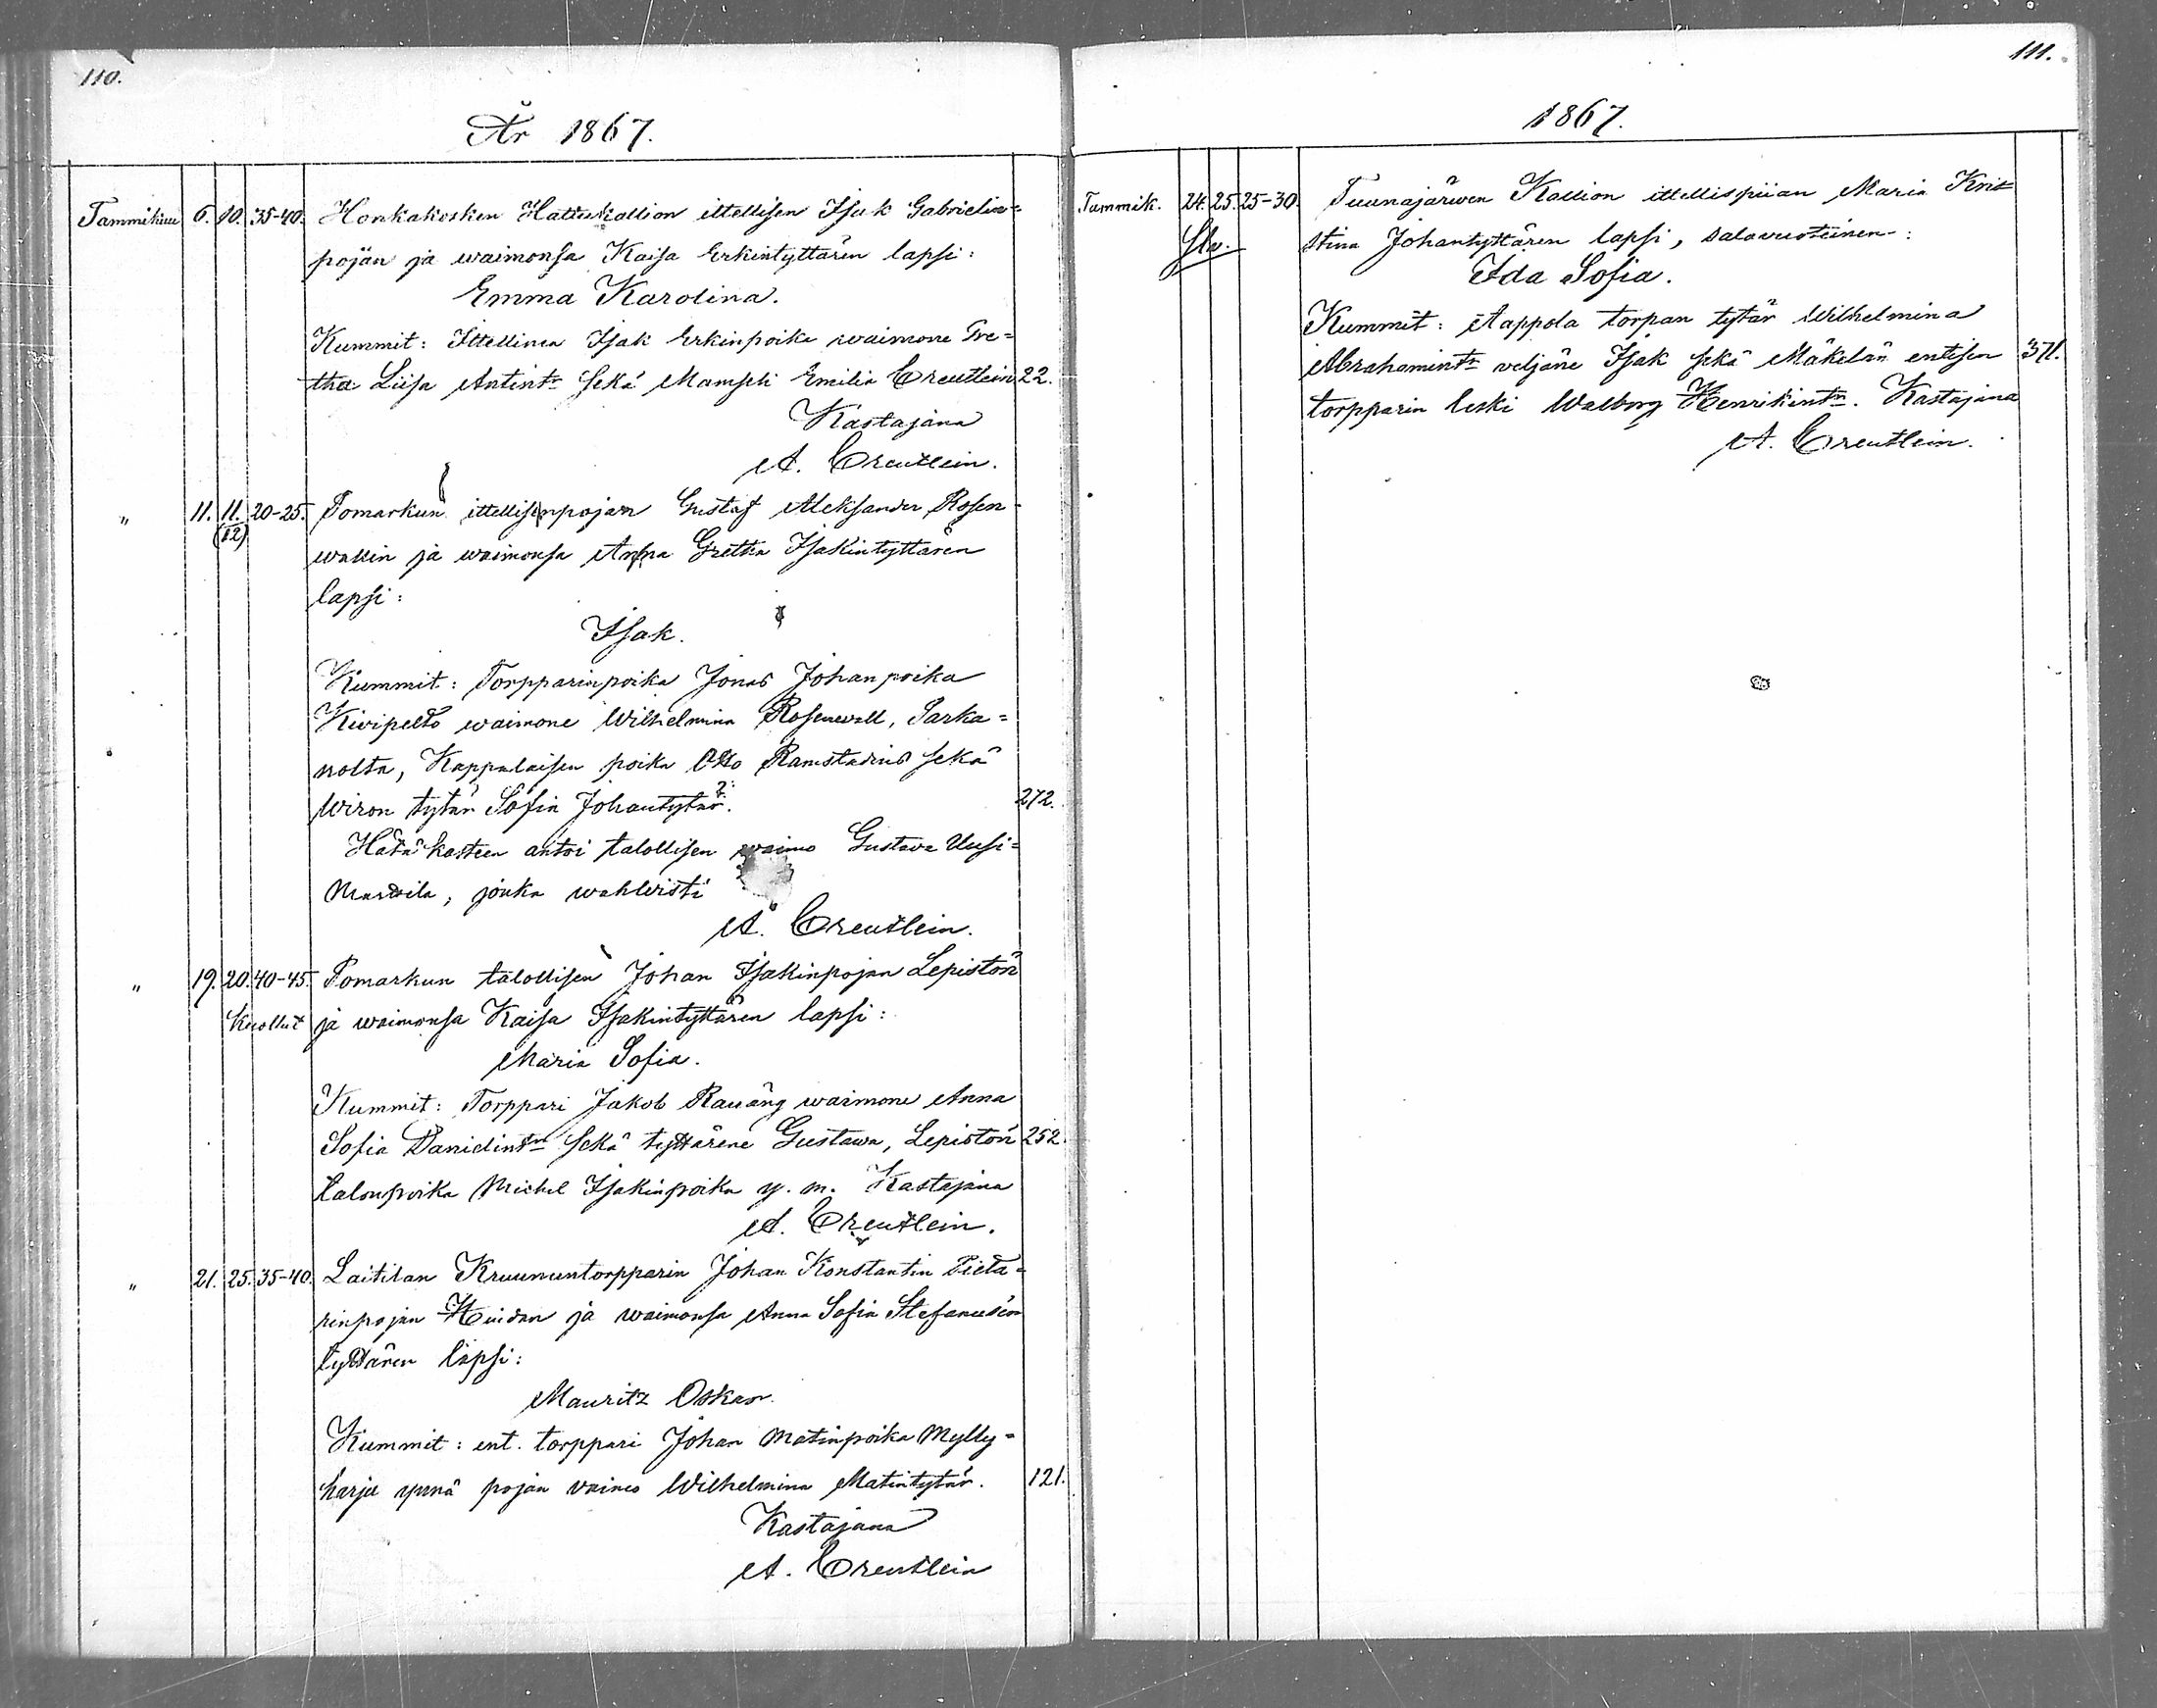 110.
År 1867.
Tammikuu 6. 10. 35-40. Honkakosken Hattukallion ittellisen Isak Gabrielin=
pojan ja waimonsa Kaisa Erkintyttären lapsi:
Emma Karolina.
Kummit: Ittellinen Isak Erkinpoika waimone Gre=
tha Liisa Antintr sekä Mamseli Emilia Creutlein 22.
Kastajana
A. Creutlein.
" 11. 11. 20-25. Pomarkun ittellisenpojan Gustaf Aleksander Rosen-
(12)
wallin ja waimonsa Anna Gretha Isakintyttären
lapsi:
Isak.
Kummit: Torpparinpoika Jonas Johanpoika
Kivipelto waimone Wilhelmina Rosenwall, Sarka=
nolta, Kappalaisen poika Otto Ramstadius sekä
Wiron tytär Sofia Johantytär. 272.
Hätä kasteen antoi talollisen waimo Gustava Uusi=
Marttila, jonka wahwisti
A. Creutlein.
" 19. 20. 40-45. Pomarkun talollisen Johan Isakinpojan Lepistön
Kuollut ja waimonsa Kaisa Isakintyttären lapsi:
Maria Sofia.
Kummit: Torppari Jakob Rauäng waimone Anna
Sofia Danielintr sekä tyttärene Gustawa, Lepistön 252.
talonpoika Michel Isakinpoika y. m. Kastajana
A. Creutlein.
" 21. 25. 35-40. Laitilan Kruununtorpparin Johan Konstantin Pieta=
rinpojan Huidan ja waimonsa Anna Sofia Stefanusen
tyttären lapsi:
Mauritz Oskar.
Kummit: ent. torppari Johan Matinpoika Mylly=
harju ynnä pojan vaimo Wilhelmina Matintytär. 121.
Kastajana
A. Creutlein
111.
1867.
Tammik. 24. 25. 25-30. Tuunajärwen Kallion ittellispiian Maria Kris=
stina Johantyttären lapsi, salavuoteinen:
Ida Sofia.
Kummit: Aappola torpan tytär Wilhelmina
Abrahamintr veljäne Isak sekä Mäkelän entisen 371.
torpparin leski Walborg Henrikintr. Kastajana
A. Creutlein.